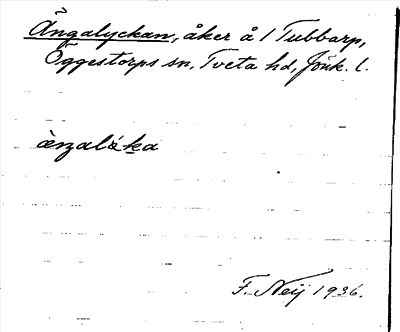 Ängalyckan, åker å 1 Tubbarp,
Öggestorps sn, Tveta hd, Jönk. l.
F. Neij 1936.